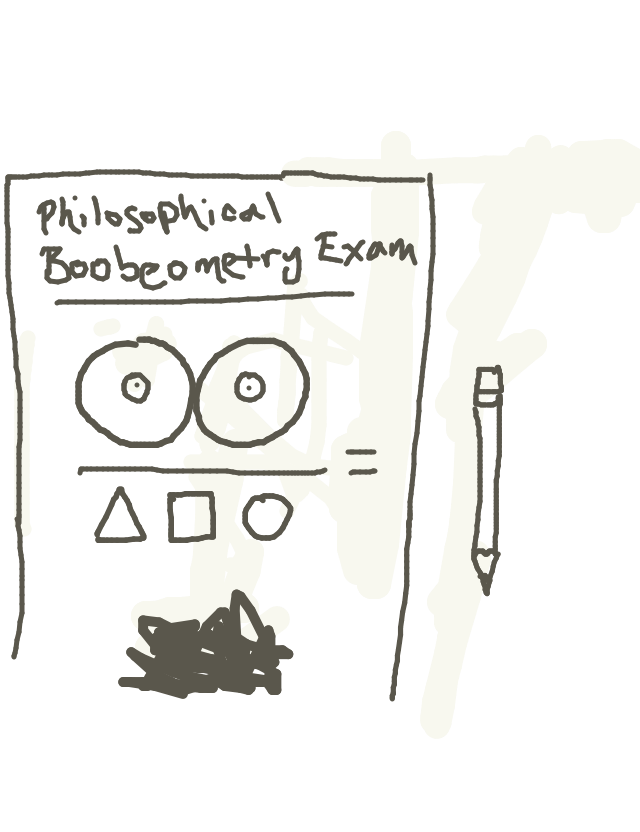 Philosophical
Boobeometry Exam
=